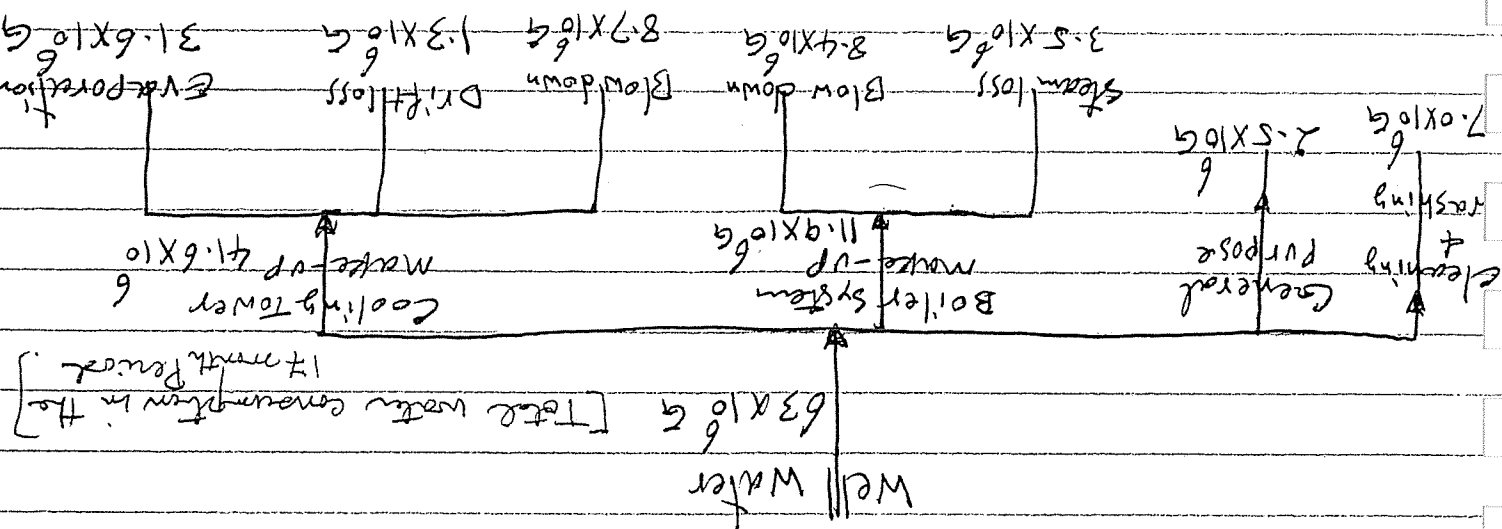 Well Water
63X10⁶ G [Total water consumption in the
17 month Period.]
Cleaning
&
washing
7.0X10⁶G
General
Purpose
2.5X10⁶G
Boiler System
make-up
11.9X10⁶G
Cooling Tower
make-up 41.6X10⁶
Steam loss
3.5X10⁶G
Blow down
8.4X10⁶G
Blow down
8.7X10⁶G
Drift loss
1.3X10⁶G
Evaporation
31.6X10⁶G